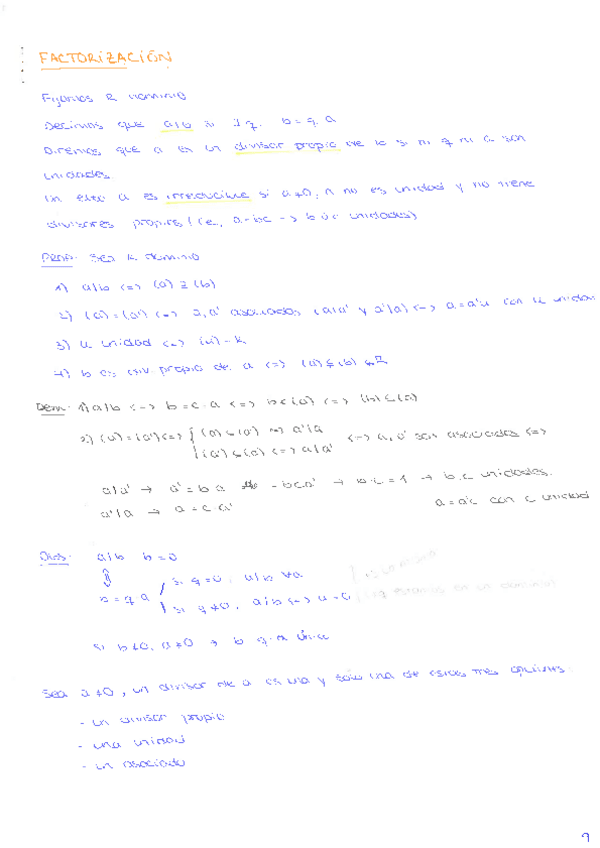 FACTORIZACIÓN
Fijamos R dominio
Decimos que a|b si ∃ q. b = q.a
Diremos que a es un divisor propio de b si ni q ni a son
unidades.
Un elto a es irreducible si a≠0, a no es unidad y no tiene
divisores propios (i.e., a=bc → b ó c unidades)
Prop: Sea R dominio
1) a|b <=> (a) ⊇ (b)
2) (a)=(a') <=> a,a' asociados (a|a' y a'|a) <-> a=a'u con u unidad
3) u unidad <=> (u)=R
4) b es div propio de a <=> (a)⊊(b)⊊R
Dem: 1) a|b <-> b=c.a <=> b∈(a) <=> (b)⊆(a)
2) (a)=(a') <=> { (a)⊆(a') a'|a
(a')⊆(a) <=> a|a' <-> a,a' son asociados <=>
a|a' → a'=b a = bca' → b.c=1 → b,c unidades.
a'|a → a=c.a' a=a'c con c unidad
a|b b=0
b=q.a si q=0, a|b
si q≠0, a|b <-> en un dominio
si b≠0, a≠0 → b=q.a único
Sea a≠0, un divisor de a es una y sólo una de estas tres opciones:
- un divisor propio
- una unidad
- un asociado
9